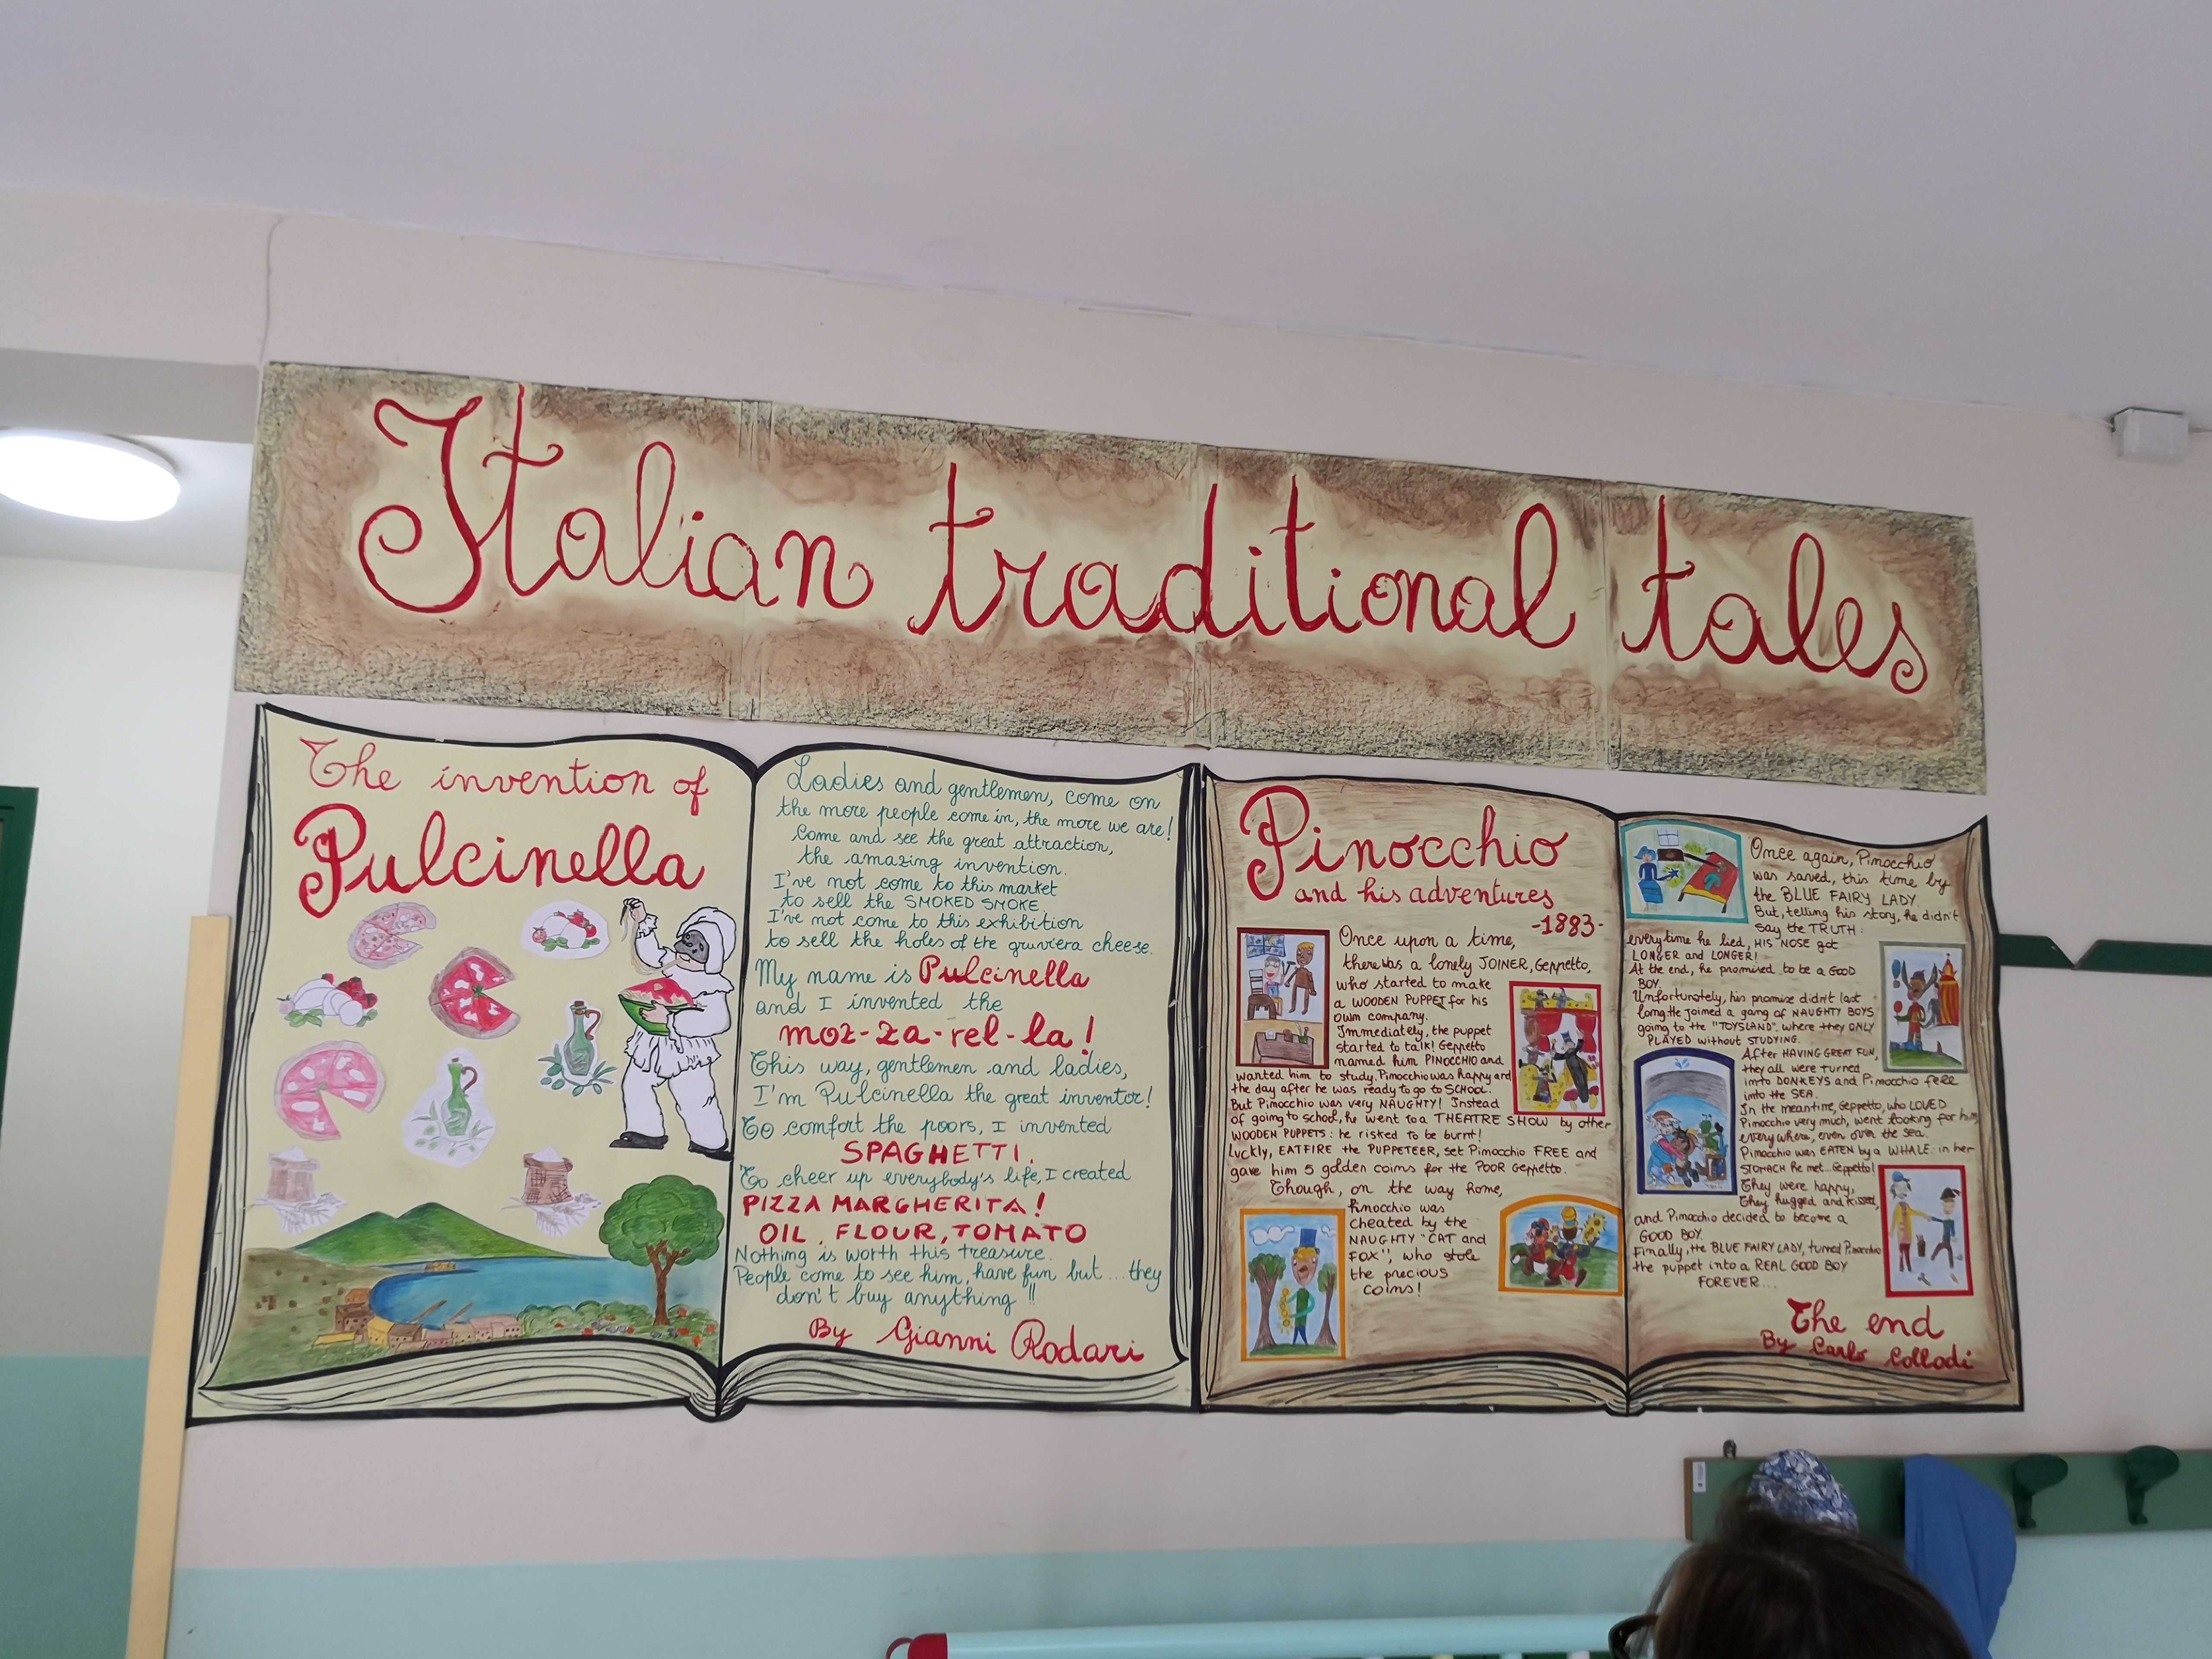 Italian traditional tales
The invention of
Pulcinella
Ladies and gentlemen, come on
the more people come in, the more we are!
Come and see the great attraction,
the amazing invention.
I've not come to this market
to sell the SMOKED SMOKE.
I've not come to this exhibition
to sell the holes of the gruviera cheese.
My name is Pulcinella
and I invented the
moz-za-rel-la!
This way, gentlemen and ladies,
I'm Pulcinella the great inventor!
To comfort the poors, I invented
SPAGHETTI.
To cheer up everybody's life, I created
PIZZA MARGHERITA!
OIL, FLOUR, TOMATO
Nothing is worth this treasure.
People come to see him, have fun but... they
don't buy anything!!
By Gianni Rodari
Pinocchio
and his adventures
-1883-
Once upon a time,
there was a lonely JOINER, Geppetto,
who started to make
a WOODEN PUPPET for his
own company.
Immediately, the puppet
started to talk! Geppetto
named him PINOCCHIO and
wanted him to study. Pinocchio was happy and
the day after he was ready to go to SCHOOL.
But Pinocchio was very NAUGHTY! Instead
of going to school, he went to a THEATRE SHOW by other
WOODEN PUPPETS: he risked to be burnt!
Luckly, EATFIRE the PUPPETEER, set Pinocchio FREE and
gave him 5 golden coins for the POOR Geppetto.
Though, on the way home,
Pinocchio was
cheated by the
NAUGHTY "CAT and
FOX", who stole
the precious
coins!
Once again, Pinocchio
was saved, this time by
the BLUE FAIRY LADY.
But, telling his story, he didn't
say the TRUTH:
everytime he lied, HIS NOSE got
LONGER and LONGER!
At the end, he promised to be a GOOD
BOY.
Unfortunately, his promise didn't last
long. He joined a gang of NAUGHTY BOYS
going to the "TOYSLAND", where they ONLY
PLAYED without STUDYING.
After HAVING GREAT FUN,
they all were turned
into DONKEYS and Pinocchio fell
into the SEA.
In the meantime, Geppetto, who LOVED
Pinocchio very much, went looking for him
everywhere, even over the sea.
Pinocchio was EATEN by a WHALE: in her
STOMACH he met... Geppetto!
They were happy,
They hugged and kissed,
and Pinocchio decided to become a
GOOD BOY.
Finally, the BLUE FAIRY LADY, turned Pinocchio
the puppet into a REAL GOOD BOY
FOREVER...
The end
By Carlo Collodi